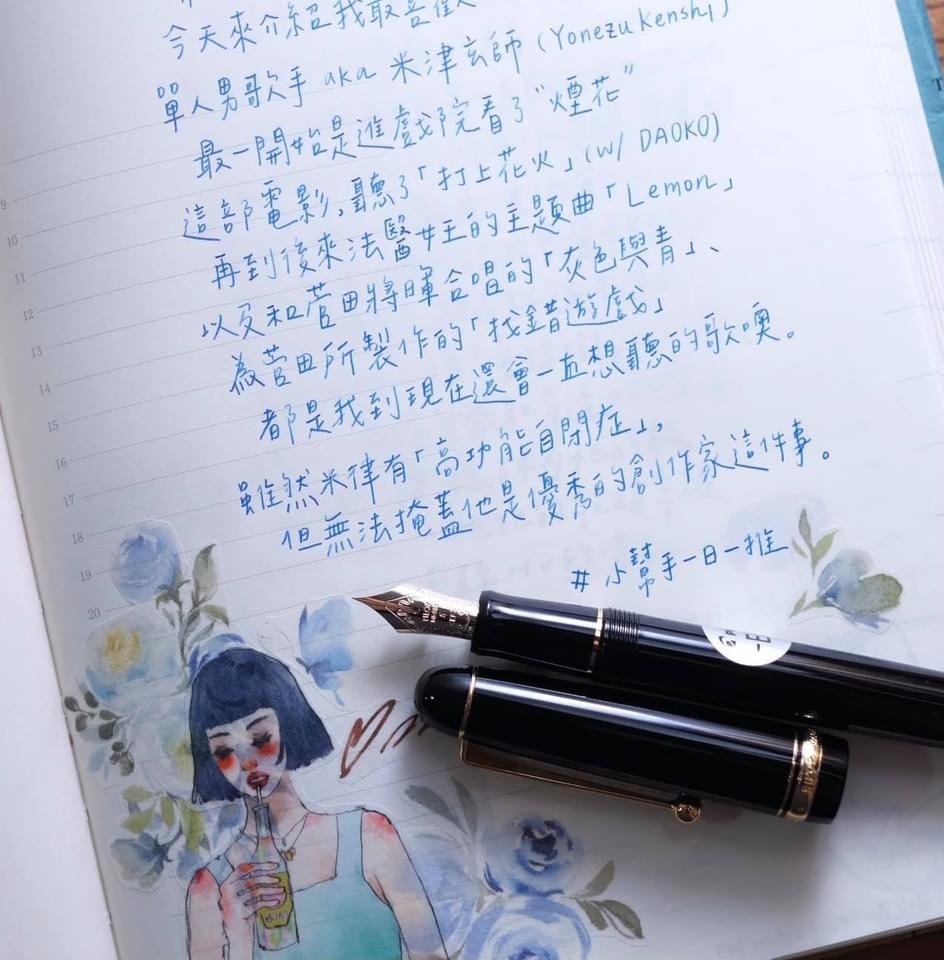 今天來介紹我最喜歡
單人男歌手 aka 米津玄師 (Yonezu Kenshi)
最一開始是進戲院看了“煙花”
這部電影,聽了「打上花火」(w/ DAOKO)
再到後來法醫女王的主題曲「Lemon」
以及和菅田將暉合唱的「灰色與青」、
為菅田所製作的「找錯遊戲」
都是我到現在還會一直想聽的歌噢。
雖然米律有「高功能自閉症」,
但無法掩蓋他是優秀的創作家這件事。
#小幫手一日一推
9
10
11
12
13
14
15
16
17
18
19
20